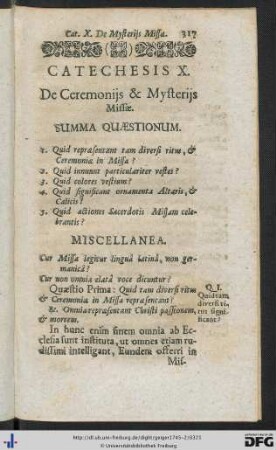 Cat. X. De Mysterijs Missa. 317
CATECHESIS X.
De Ceremonijs & Mysterijs
Missæ.
SUMMA QUÆSTIONUM.
1. Quid repræsentant tam diversi ritus, &
Ceremoniæ in Missa?
2. Quid innuunt particulariter vestes?
3. Quid colores vestium?
4. Quid significant ornamenta Altaris, &
Calicis?
5. Quid actiones Sacerdotis Missam cele-
brantis?
MISCELLANEA.
Cur Missa legitur linguâ latinâ, non ger-
manicâ?
Cur non omnia elatâ voce dicuntur?
Quæstio Prima: Quid tam diversi ritus
& Ceremoniæ in Missa repræsentant?
Q. I.
Quid tam
diversi ri-
tus signi-
ficant?
R. Omnia repræsentant Christi passionem,
& mortem.
In hunc enim finem omnia ab Ec-
clesia sunt instituta, ut omnes etiam ru-
dissimi intelligant, Eundem offerri in
Mis-
http://dl.ub.uni-freiburg.de/diglit/geiger1765-2/0325
© Universitätsbibliothek Freiburg